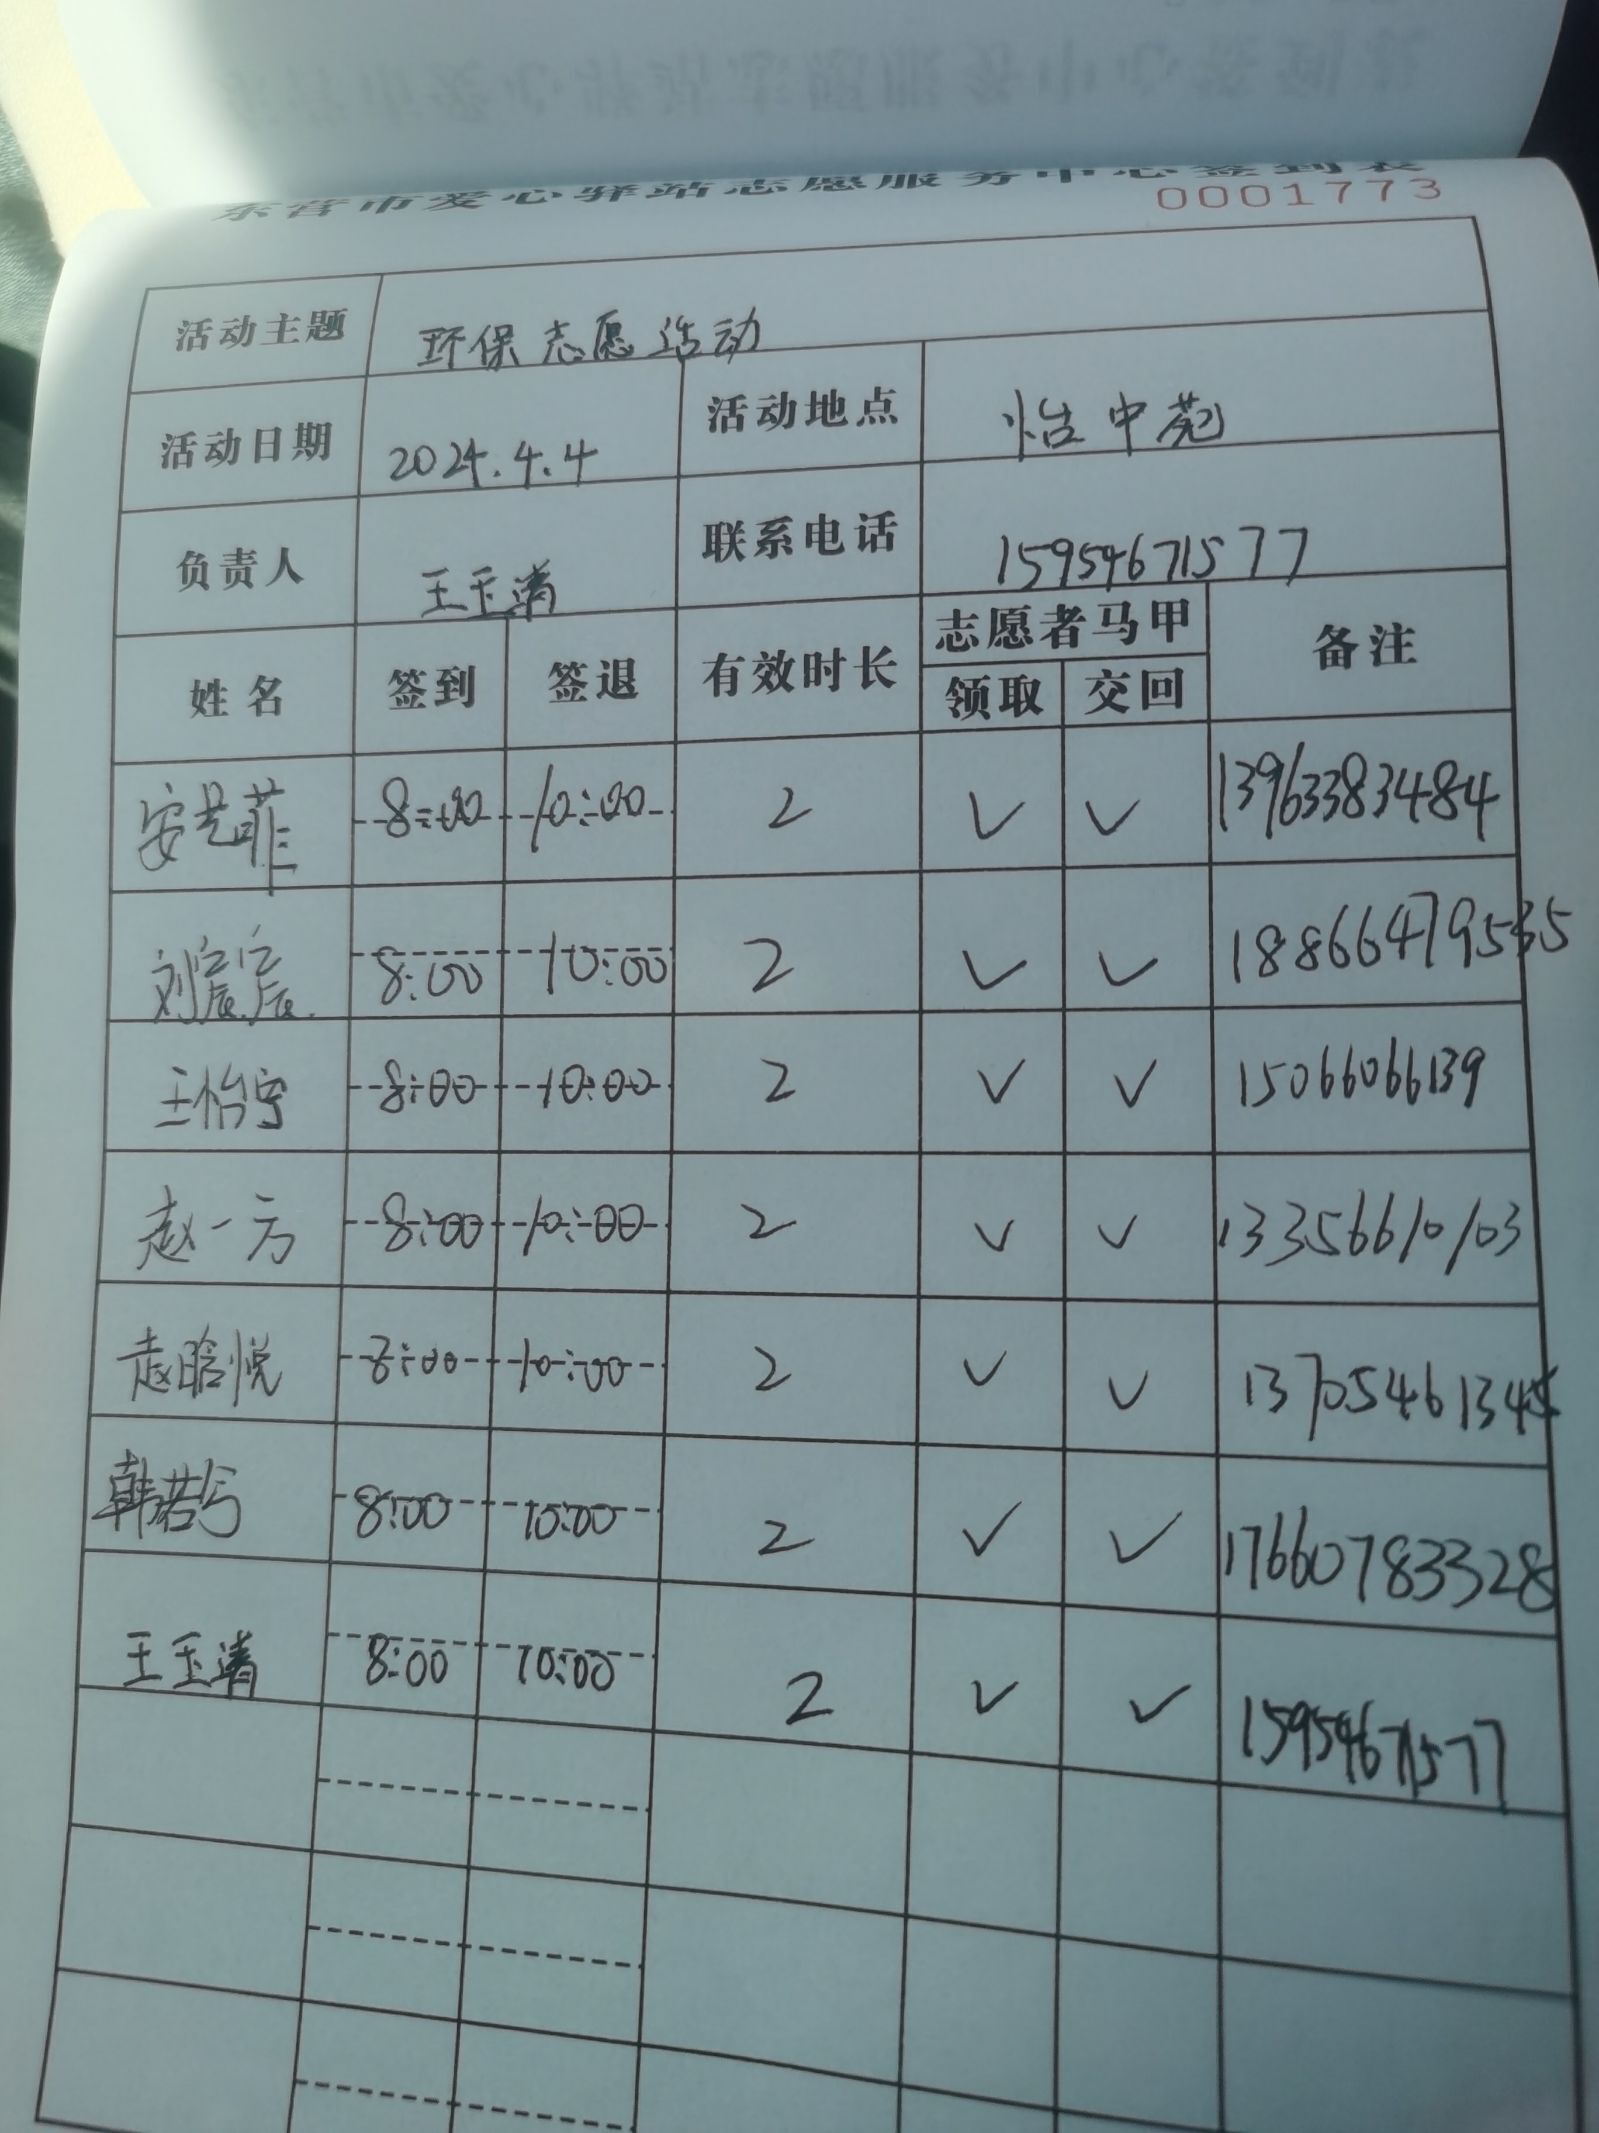 东营市爱心驿站志愿服务中心签到表
0001773
活动主题 环保志愿活动
活动日期 2024.4.4 活动地点 怡中苑
负责人 王玉清 联系电话 15954671577
姓名 签到 签退 有效时长 志愿者马甲 备注
领取 交回
安艺菲 8:00 10:00 2 ✓ ✓ 13963383484
刘宸宸 8:00 10:00 2 ✓ ✓ 18866479535
王怡宁 8:00 10:00 2 ✓ ✓ 15066066139
赵一方 8:00 10:00 2 ✓ ✓ 13356610103
赵晗悦 8:00 10:00 2 ✓ ✓ 13705461345
韩若兮 8:00 10:00 2 ✓ ✓ 17660783328
王玉清 8:00 10:00 2 ✓ ✓ 15954671577